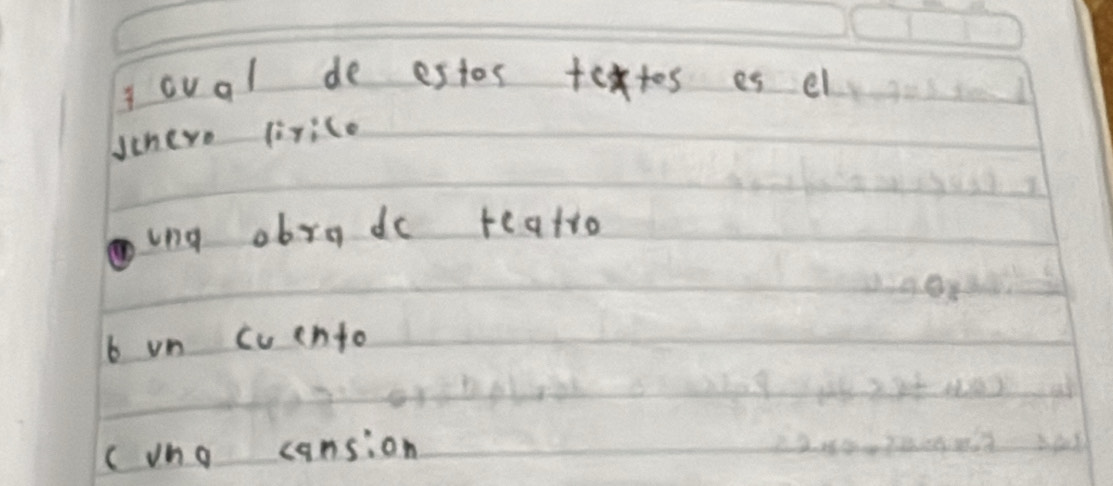 1 cual de estos textos es el
jenero lirico
una obra de teatro
b un cuento
c una cansion